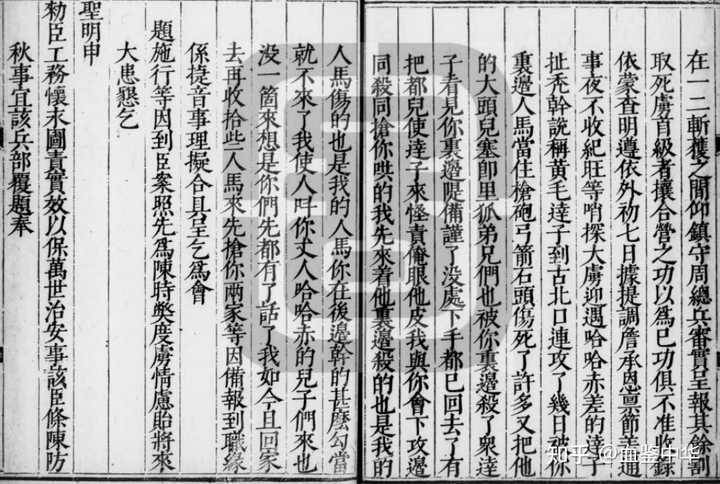 在一二斬獲之間仰鎮守周總兵審實呈報其餘割
取死虜首級者攘合營之功以為已功俱不准收錄
依蒙查明遵依外初七日據提調詹承恩禀節差通
事夜不收紀旺等哨探大虜迎遇哈哈赤差的達子
扯禿幹說稱黃毛達子到古北口連攻了幾日被你
裏邊人馬當住槍砲弓箭石頭傷死了許多又把他
的大頭兒塞卽里狐弟兄們也被你裏邊殺了衆達
子看見你裏邊隄備謹了没處下手都已回去了有
把都兒使達子來怪責俺眼他皮我與你會下攻邊
同殺同搶你哄的我先來着他裏邊殺的也是我的
人馬傷的也是我的人馬你在後邊幹的甚麽勾當
就不來了我使人呌你丈人哈哈赤的兒子們來也
没一箇來想是你們先都有了話了我如今且回家
去再收拾些人馬來先搶你兩家等因備報到職緣
係捷音事理擬合具呈乞為會
題施行等因到臣案照先為陳時獘度虜情慮貽將來
大患懇乞
聖明申
勑臣工務懷永圖責實效以保萬世治安事該臣條陳防
秋事宜該兵部覆題奉
知乎 @血鉴中华